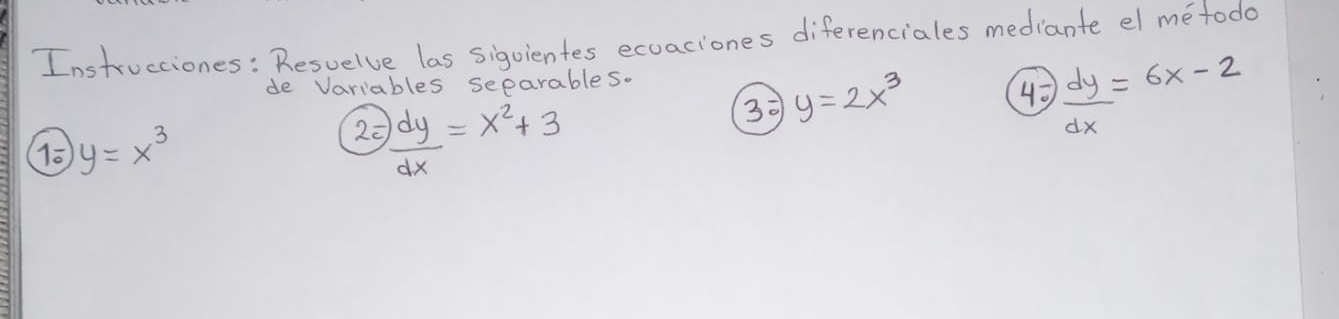 Instrucciones: Resuelve las siguientes ecuaciones diferenciales mediante el método
de Variables Separables.
1º y = x³
2º dy/dx = x² + 3
3º y = 2x³
4º dy/dx = 6x - 2